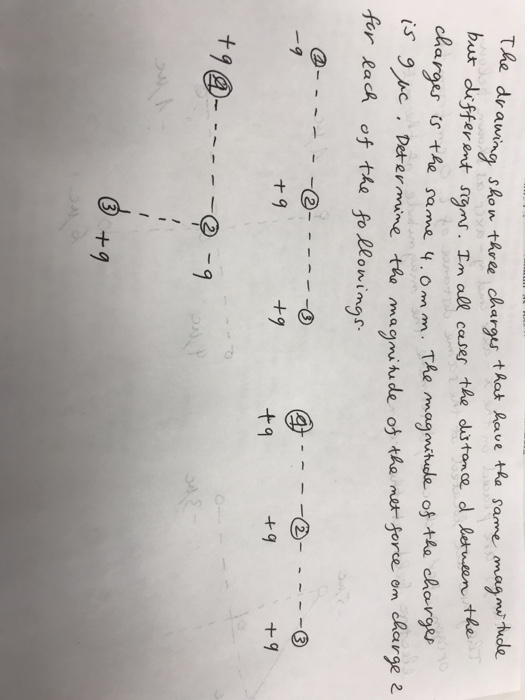 The drawing show three charges that have the same magnitude
but different signs. In all cases the distance d between the
charges is the same 4.0 mm. The magnitude of the charges
is 9 μc. Determine the magnitude of the net force on charge 2
for each of the followings.
① ② ③
-9 +9 +9
② ③
+9 +9 +9
+9 ② -9
③ +9